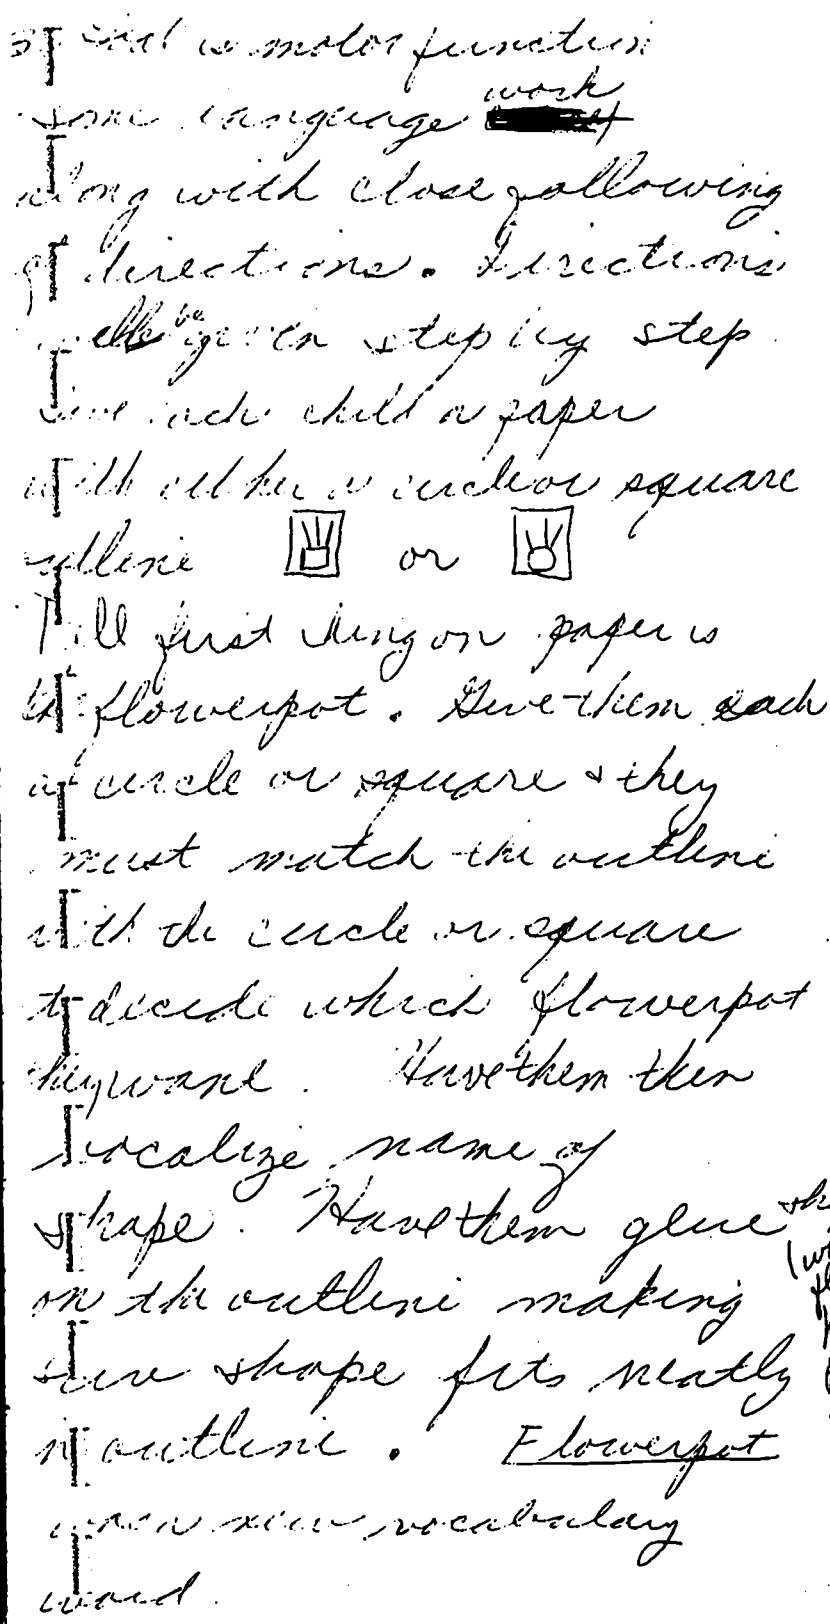 is motor function
some language work
along with close following
of directions. Directions
will be given step by step
Give each child a paper
with either a circle or square
outline or
Tell first thing on paper is
the flowerpot. Give them each
a circle or square & they
must match the outline
with the circle or square
to decide which flowerpot
they want. Have them then
vocalize name of
shape. Have them glue
on the outline making
sure shape fits neatly
in outline. Flowerpot
was a new vocabulary
word.